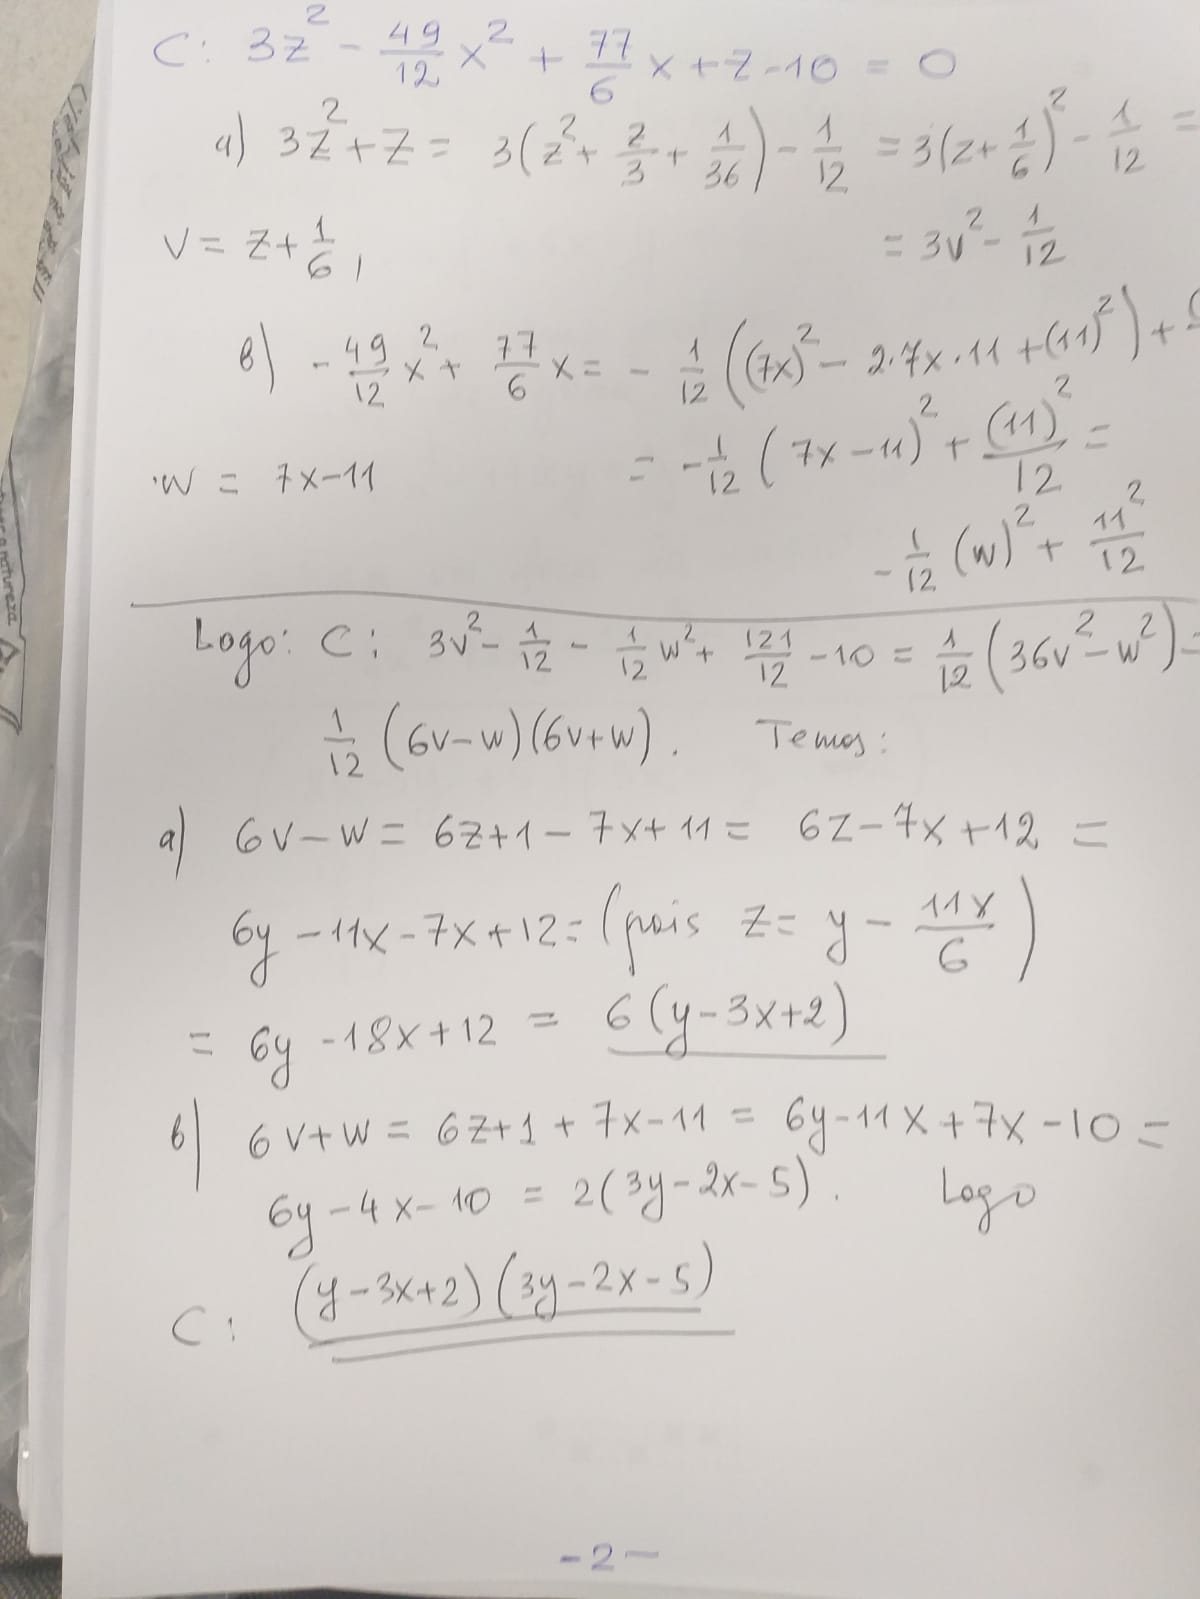 C: 3z² - 49/12 x² + 77/6 x + z - 10 = 0
a) 3z² + z = 3(z² + z/3 + 1/36) - 1/12 = 3(z + 1/6)² - 1/12 =
v = z + 1/6, = 3v² - 1/12
b) - 49/12 x² + 77/6 x = - 1/12 ((7x)² - 2·7x·11 + (11)²) +
w = 7x - 11 = - 1/12 (7x - 11)² + (11)²/12 =
- 1/12 (w)² + 11²/12
Logo: C: 3v² - 1/12 - 1/12 w² + 121/12 - 10 = 1/12 (36v² - w²) =
1/12 (6v - w)(6v + w). Temos:
a) 6v - w = 6z + 1 - 7x + 11 = 6z - 7x + 12 =
6y - 11x - 7x + 12 = (pois z = y - 11x/6)
= 6y - 18x + 12 = 6(y - 3x + 2)
b) 6v + w = 6z + 1 + 7x - 11 = 6y - 11x + 7x - 10 =
6y - 4x - 10 = 2(3y - 2x - 5). Logo
C: (y - 3x + 2)(3y - 2x - 5)
- 2 -
natureza